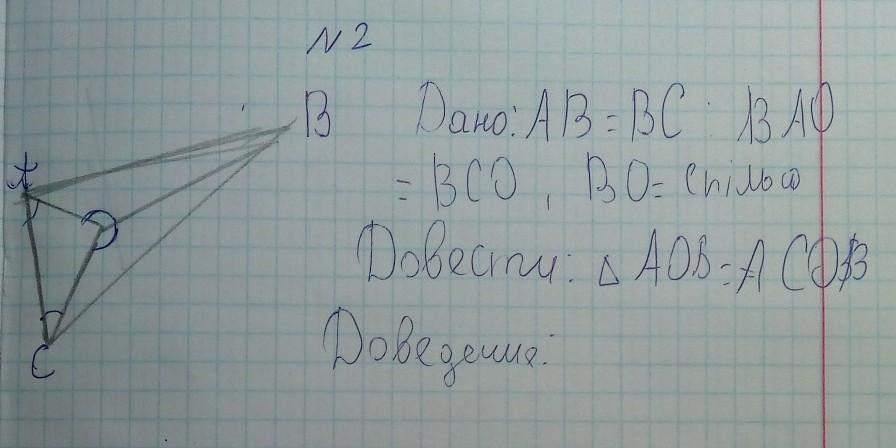 N 2
B
Дано: AB = BC : BAO
A
= BCO, BO = спільа
Довести: △ AOB = △ COB
Доведення:
C